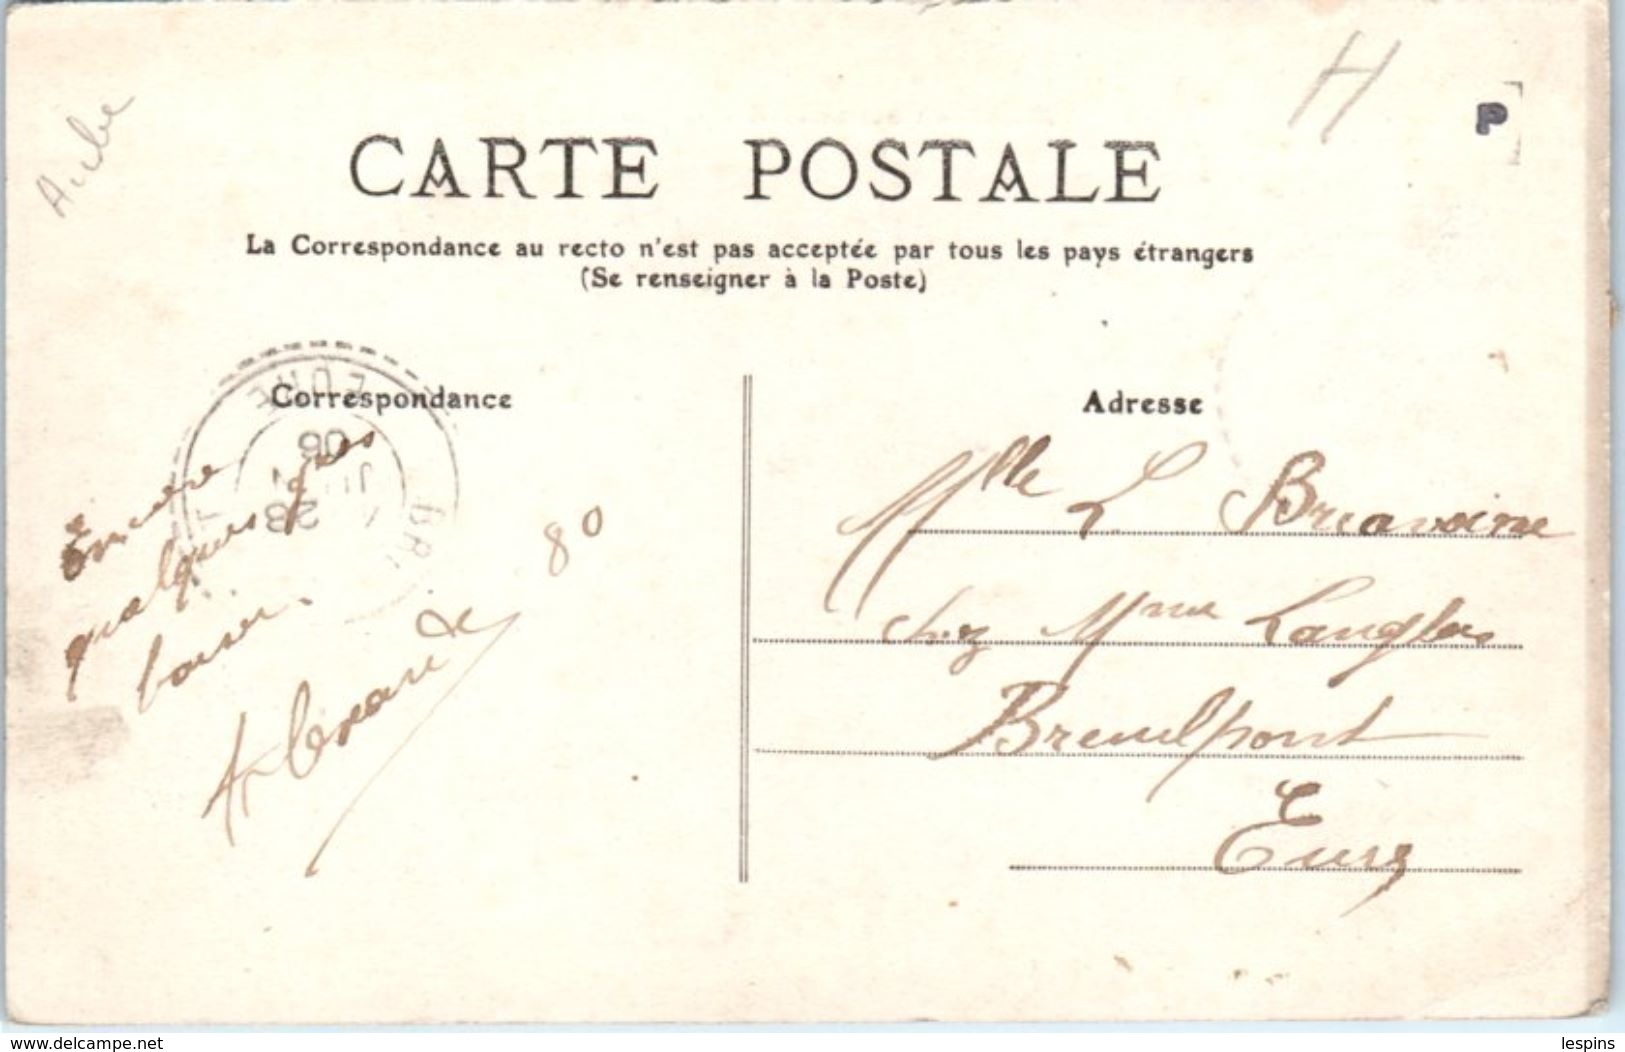 Aube
H
P
CARTE POSTALE
La Correspondance au recto n'est pas acceptée par tous les pays étrangers
(Se renseigner à la Poste)
Correspondance
Adresse
EURE
28
JUIN
06
Encore
quelques gros
baiser.
80
Mlle L. Breavoine
chez Mme Langlois
Breuilpont
Eure
www.delcampe.net
lespins